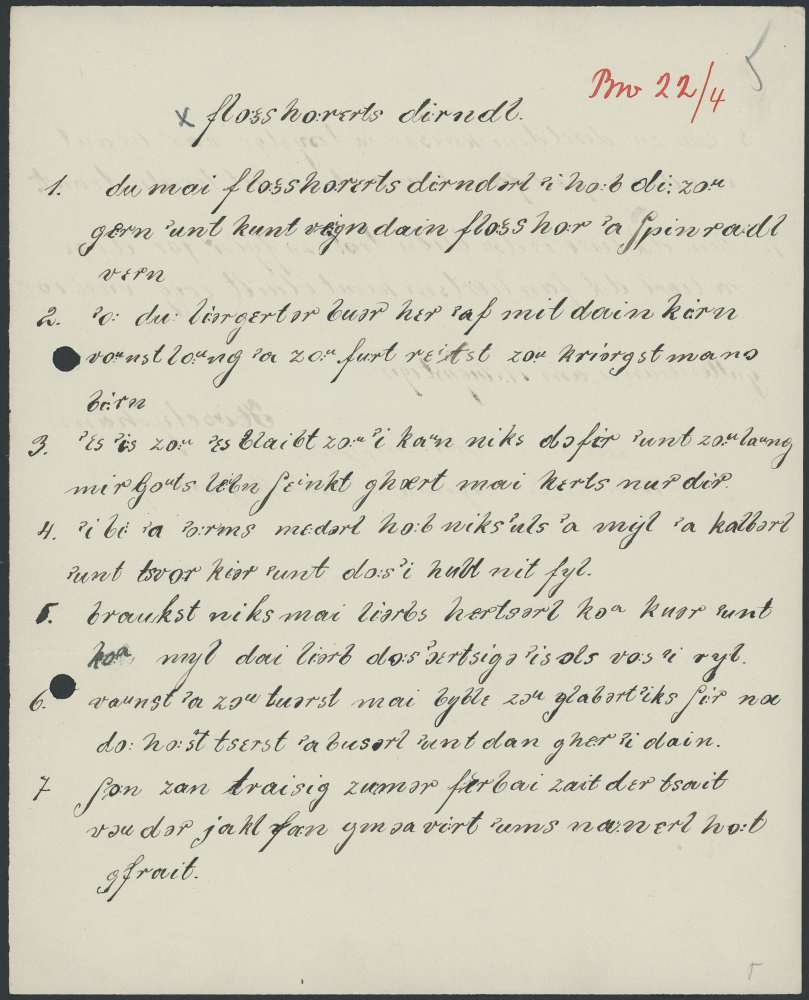 Bw 22/4
5
x flo:ʒshorɛrts dirndl.
1. du mai flo:ʒshorɛrts dirndərl ˀi ho:b di: zoᵘ
gɛrn ˀunt kunt dain flo:ʒs hor ˀa ʃpinra:dl
vɛrn
2. ˀo: du: liərgɛrtər buər hɛr ˀaf mit dain kirn
voᵃnst loᵘng ˀa zoᵘ furt zoᵘ kriərgst manə
birn
3. ˀɛs ˀis zoᵘ ˀɛs blaibt zoᵘ ˀi kaᵘn niks dəfir ˀunt zoᵘ laᵘng
mir goᵘts lɛbn ʃɛinkt ghœrt mai hɛrts nur dir.
4. ˀi bi ˀa ˀo:rms medərl ho:b niks ˀuls ˀa myl ˀa kalbərl
ˀunt tsvor kiər ˀunt do:s ˀi hubl nit fyl.
5. braukst niks mai liərbs hɛrtsərl koᵃ kuər ˀunt
koᵃ myl dai liərb do:s ˀɛrtsigə ˀis ols vo:s ˀi vyl.
6. vaᵘnst ˀa zoᵘ tuərst mai byble zoᵘ glabərt ˀiks ʃir na
do: ho:st tsɛrst ˀa busərl ˀunt dan ghɛr ˀi dain.
7 ʃon zan traisig zumər fɛrbai zait dɛr tsait
vəu dər jakl fan gmoa virt ˀums na:nɛrl ho:t
gfrait.